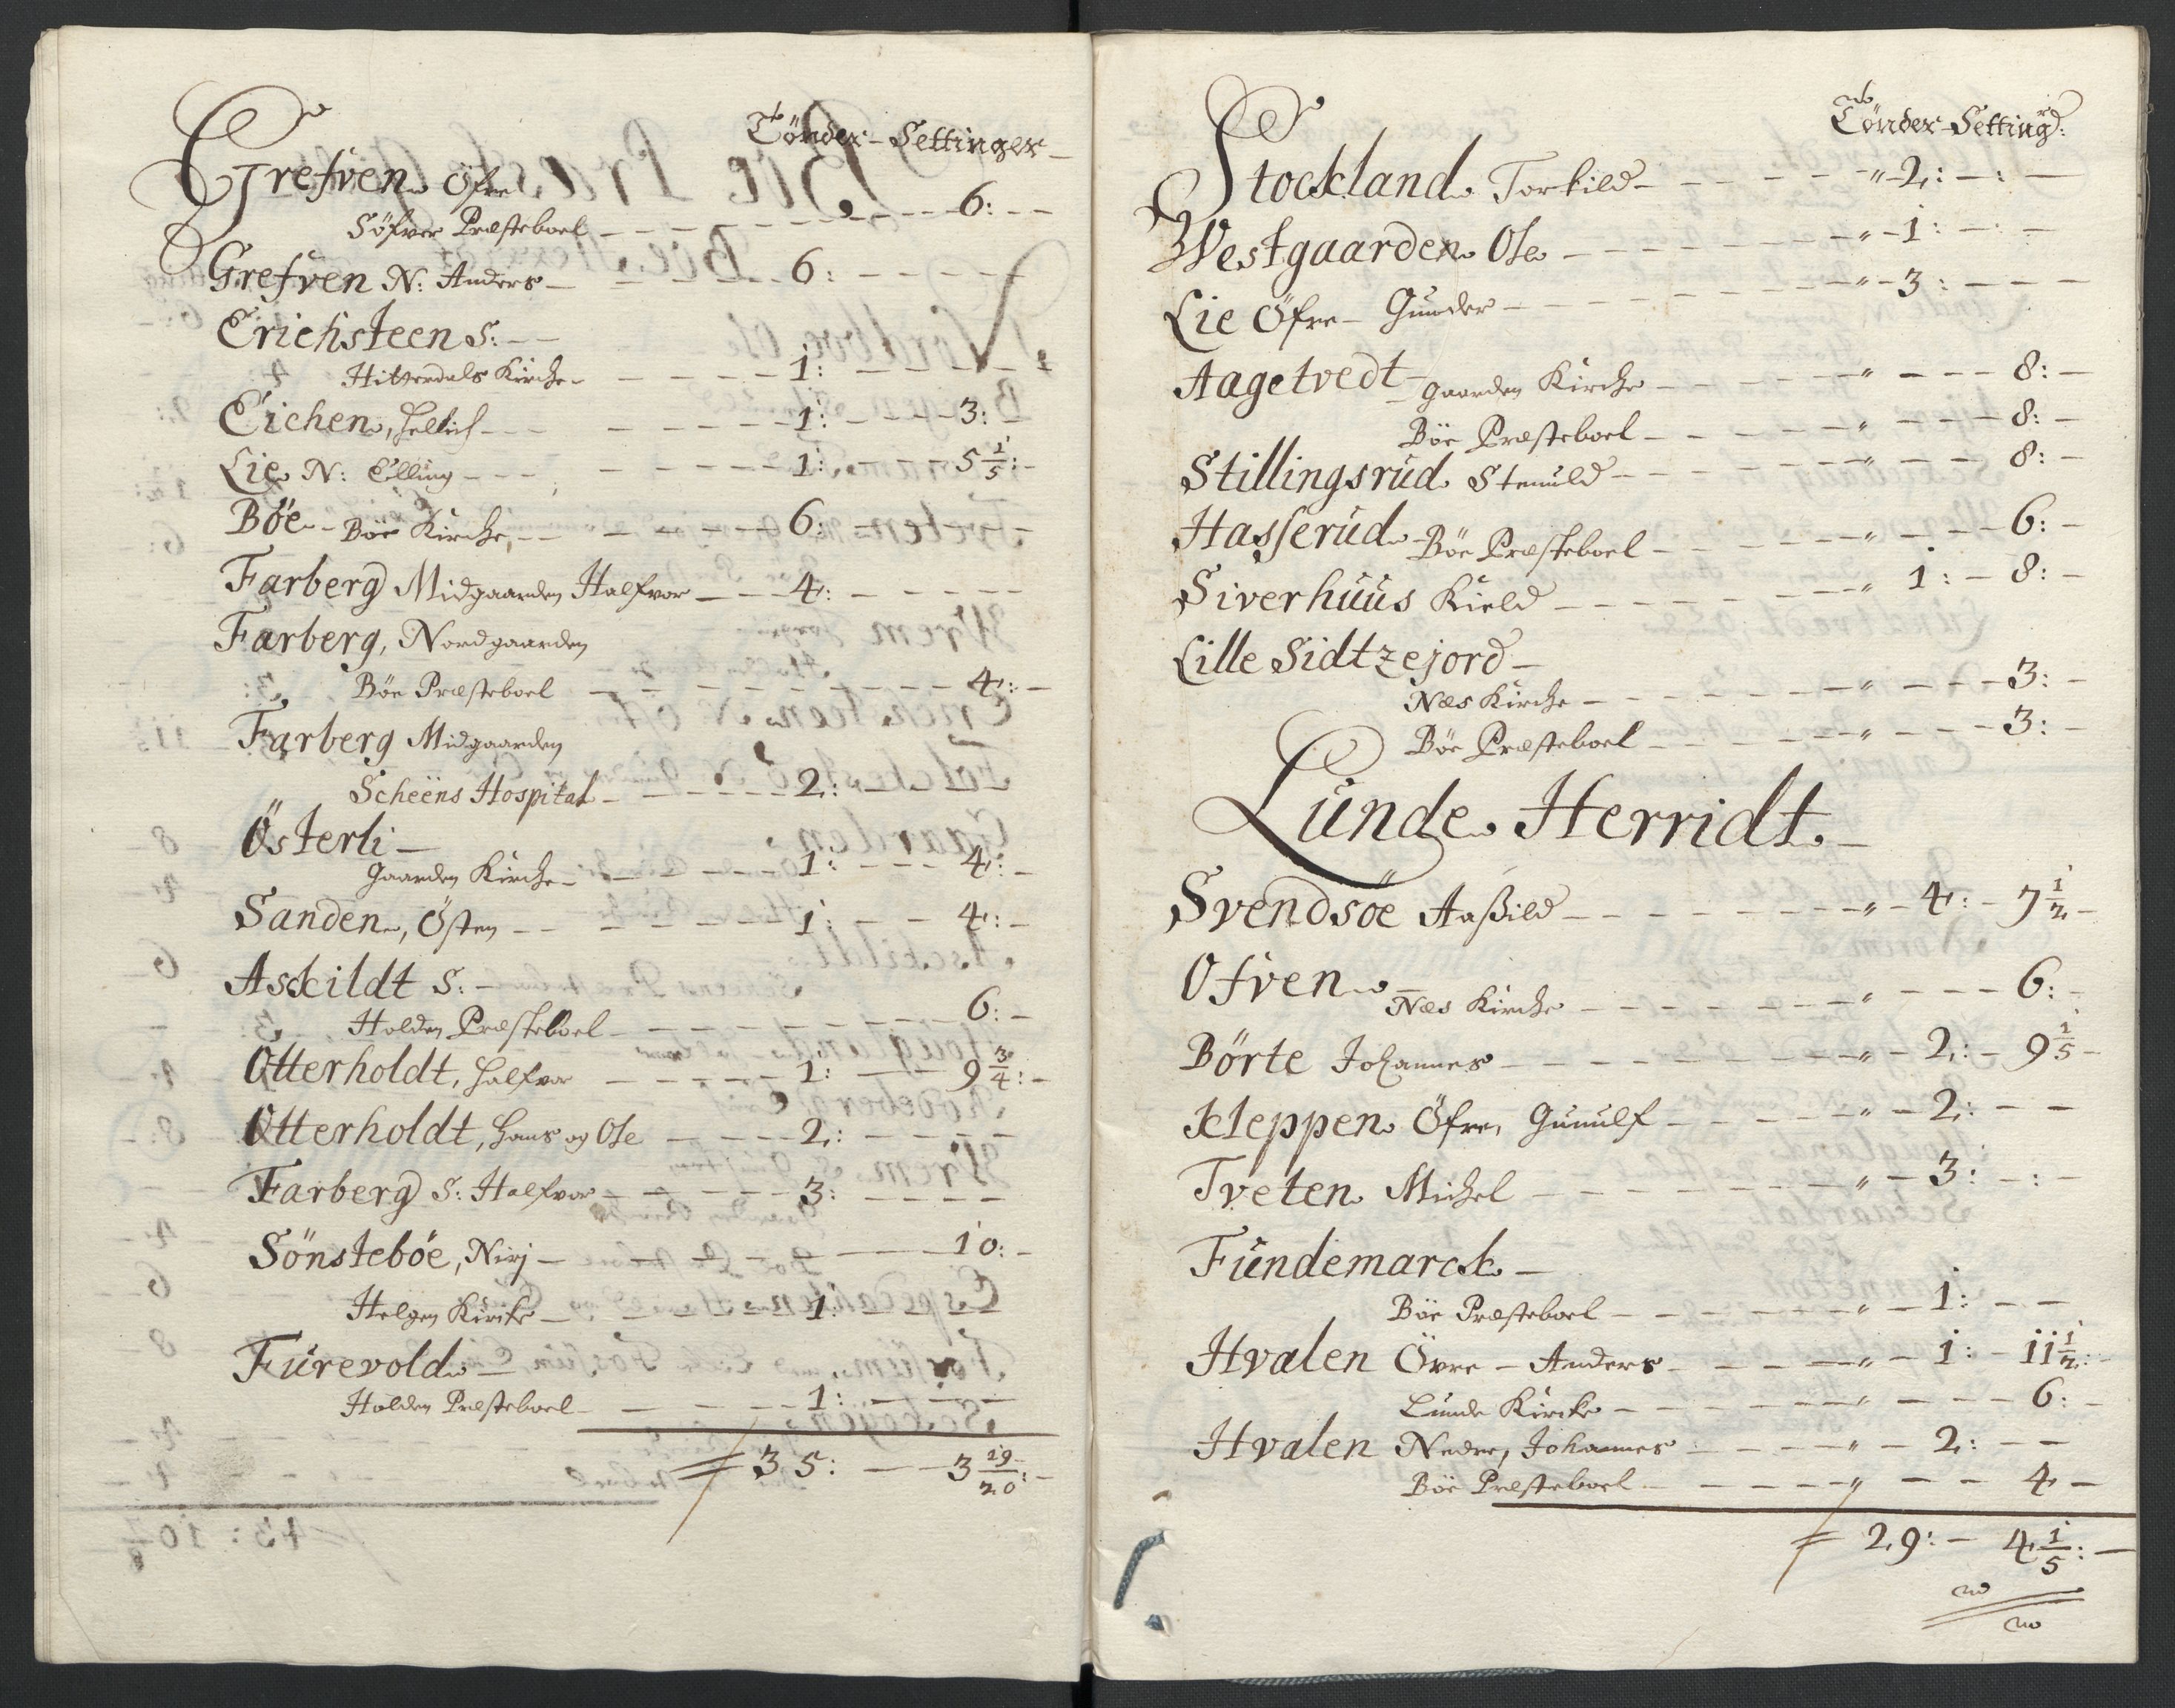 Tönder - Settinger -
Grefven Öfre
Söfver Præsteboel - - - - - - 6: - -
Grefven N: Anders - - - 6: - - - - -
Erichsteen S: - -
Hitterdals Kirche - - - - - 1: - - - - -
Eichen, Hellich - - - - - - - 1: - - - 3: -
Lie N: Elling - - - - - - - - 1: - - - 5 1/5: -
Böe - Böe Kirche, - - - - - - 6: - - - -
Farberg Midgaarden Halfvor - - - 4: - - - - -
Farberg, Nordgaarden
Böe Præsteboel - - - - - - - - - 4: -
Farberg Midgaarden
Scheëns Hospital - - - - - - 2: - - - -
Österli -
Gaarden Kirche - - - - - 1: - - - 4: -
Sanden, Östen - - - - - - 1: - - 4: -
Asckildt S: -
Holden Præsteboel - - - - - - - - 6: -
Otterholdt, Halfvor - - - - - 1: - - 9 3/4: -
Otterholdt, Hans og Ole - - - - 2: - - - -
Farberg S: Halfvor - - - - - - 3: - - - -
Sönsteböe, Nirj - - - - - - - - 10: -
Helgen Kircke - - - - - 1: - - - -
Furevold -
Holden Præsteboel - - - - - 1: - - - -
35: - - 3 19/20: -
Tönder - Setting:
Stockland Torkild - - - - - - " - 2: - : -
Westgaarden Ole - - - - - - - " - 1: - - -
Lie Öfre - Gunder - - - - - - - " - 3: - - -
Aagetvedt - Gaarden Kirche - - - - - " - - - 8: -
Böe Præsteboel - - - - - " - - - 8: -
Stillingsrud Stenuld - - - - - - - " - - - 8: -
Hasserud - Böe Præsteboel - - - - - " - - - 6: -
Siverhuus Kield - - - - - - - " 1: - 8: -
Lille Sidtzejord -
Næs Kirche - - - - - - - " - - - 3: -
Böe Præsteboel - - - - - - " - - - 3: -
Lunde Herridt. -
Svendsöe Aaßild - - - - - - - " - 4: - 7 1/2 -
Ofven - Næs Kirche - - - - - - " - - - 6: -
Börte Johannes - - - - - - - - " - 2: - 9 1/5 -
Kleppen Öfre, Gunulf - - - - - " - 2: - -
Tveten Michel - - - - - - - " - 3: - : -
Fundemarck -
Böe Præsteboel - - - - - - " - 1: - -
Hvalen Övre - Anders - - - - - " - 1: - 11 1/2: -
Lunde Kircke - - - - - - " - - - 6: -
Hvalen Nedre, Johannes - - - - " - 2: - -
Böe Præsteboel - - - - - " - - - 4 -
29: - 4 1/5: -